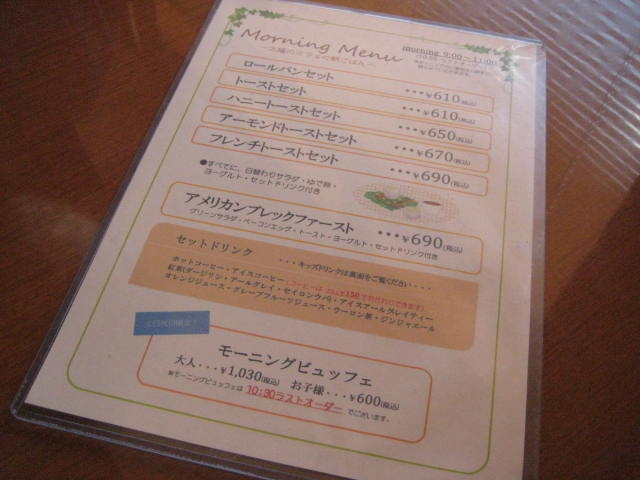 Morning Menu
morning 9:00～11:00
ロールパンセット ・・・¥610(税込)
トーストセット ・・・¥610(税込)
ハニートーストセット ・・・¥650(税込)
アーモンドトーストセット ・・・¥670(税込)
フレンチトーストセット ・・・¥690(税込)
●すべてに、日替わりサラダ・ゆで卵・
ヨーグルト・セットドリンク付き
アメリカンブレックファースト ・・・¥690(税込)
グリーンサラダ・ベーコンエッグ・トースト・ヨーグルト・セットドリンク付き
セットドリンク ・・・キッズドリンクは裏面をご覧ください・・・
ホットコーヒー・アイスコーヒー(コーヒーは ¥150でおかわりできます)
紅茶(ダージリン・アールグレイ・セイロンウバ)・アイスアールグレイティー
オレンジジュース・グレープフルーツジュース・ウーロン茶・ジンジャエール
モーニングビュッフェ
大人・・・¥1,030(税込) お子様・・・¥600(税込)
※モーニングビュッフェは 10:30ラストオーダー でございます。